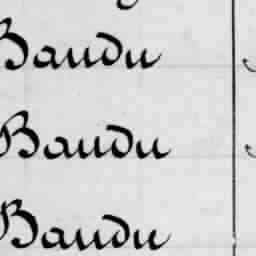 Baudu
Baudu
Baudu